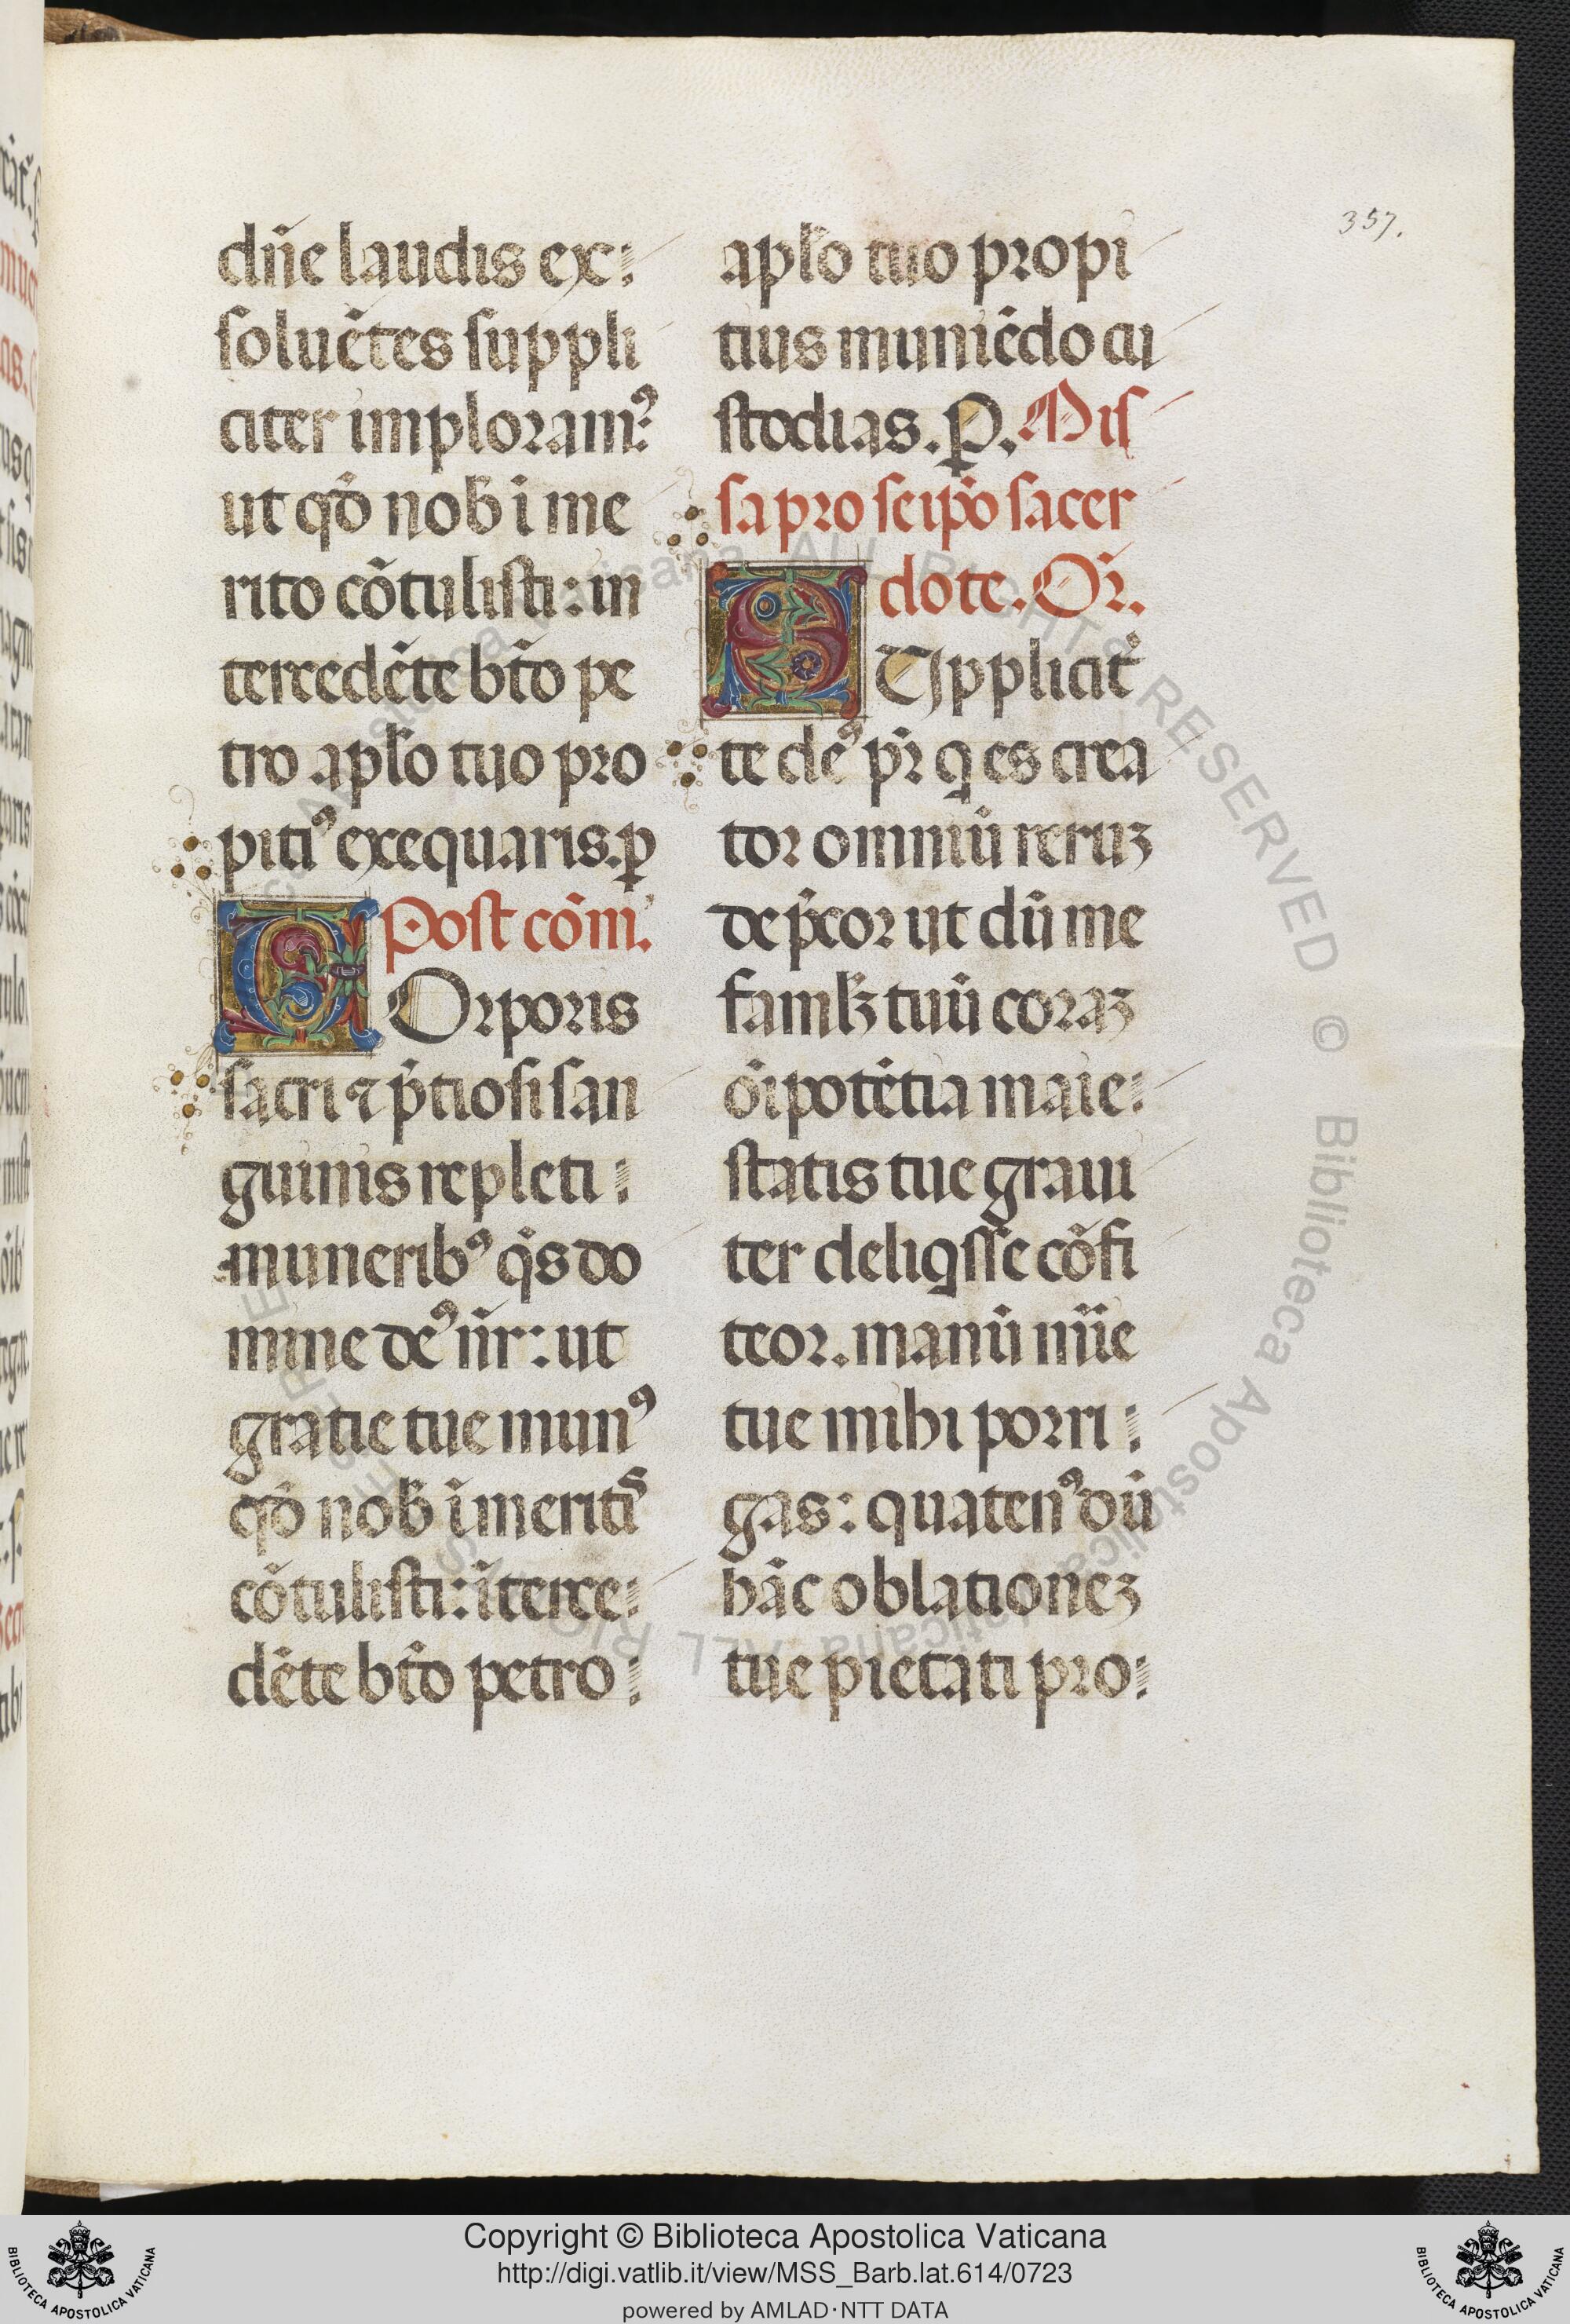 357.
dñe laudis ex
soluẽtes suppli
citer imploramꝰ:
ut qđ nob̃ i me
rito cõtulisti: in
tercedẽte bt̃o pe
tro apl̃o tuo pro
pitiꝰ exequaris. ꝑ
Post cõm.
Corporis
sacri ⁊ p̃tiosi san
guinis repleti
muneribꝰ q̃s do
mine deꝰ nr̃: ut
gratie tue munꝰ
qđ nob̃ ĩmeritis
cõtulisti: ĩterce
dẽte bt̃o petro
apl̃o tuo propi
tius muniẽdo cu
stodias. P. Mis
sa pro seip̃o sacer
dote. Or̃.
Suppliciter
te deꝰ pr̃ q es crea
tor omniũ reruꝫ
dep̃cor ut dũ me
famlꝫ tuũ coraꝫ
õipotẽtia maie
statis tue graui
ter deliqsse cõfi
teor. manũ mĩe
tue mihi porri
gas: quatenꝰ dũ
hãc oblationeꝫ
tue pietati pro
Copyright © Biblioteca Apostolica Vaticana
http://digi.vatlib.it/view/MSS_Barb.lat.614/0723
powered by AMLAD·NTT DATA
BIBLIOTECA APOSTOLICA VATICANA
BIBLIOTECA APOSTOLICA VATICANA